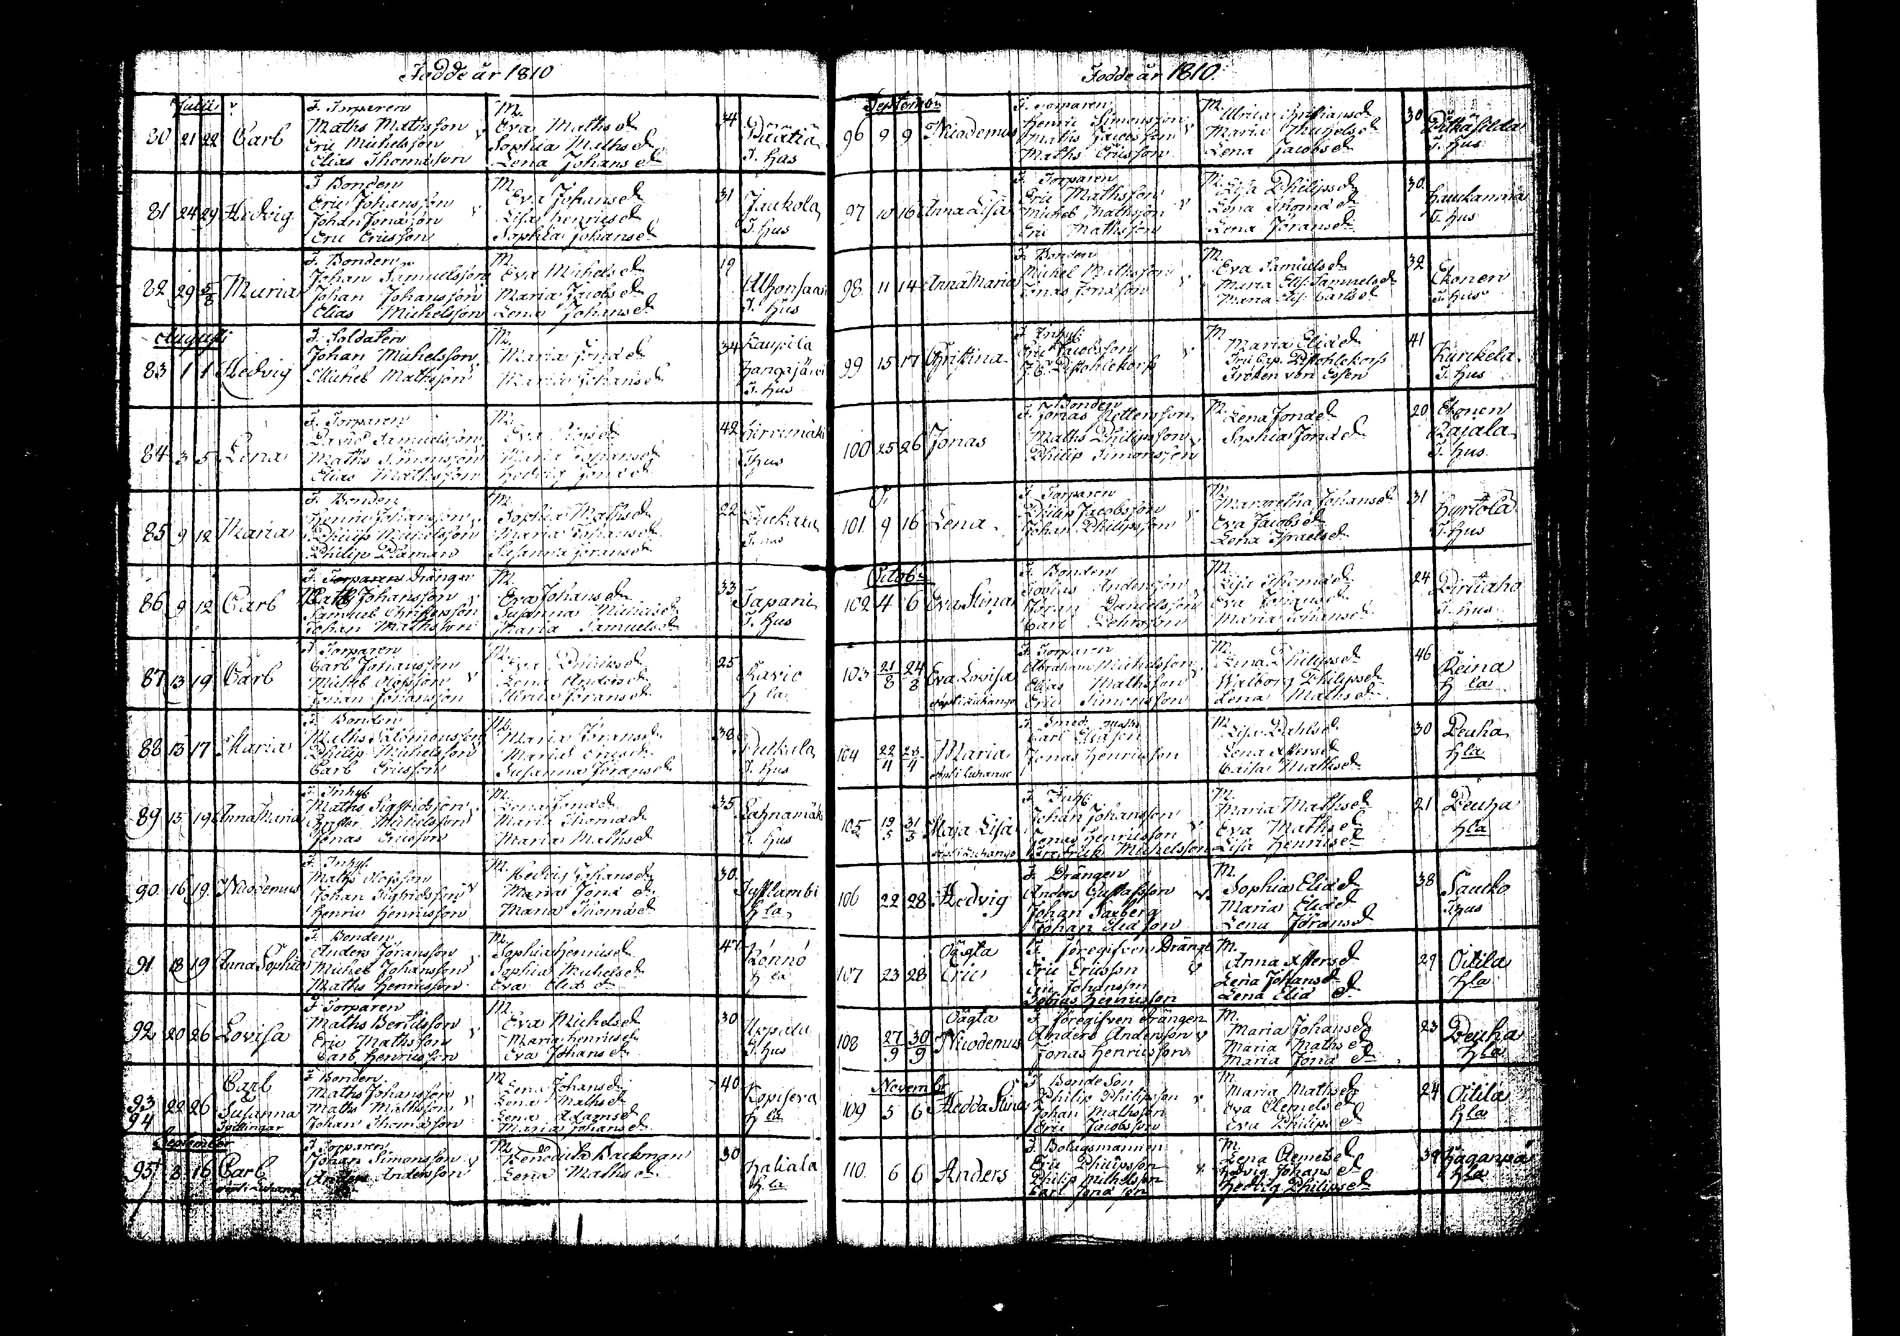 Födde år 1810
Julii
80 21 22 Carl
F. Torparen
Maths Mathsson
Eric Michelsson
Elias Thomasson
M.
Eva Mathsd.
Sophia Mathsd.
Lena Johansd.
34
T. hus
81 24 29 Hedvig
F. Bonden
Eric Johansson
Johan Jonasson
Eric Ericsson
M.
Eva Johansd.
Lisa Henricsd.
Sophia Johansd.
31
Jaukola
T. hus
82 29 5/8 Maria
F. Bonden
Johan Samuelsson
Johan Johansson
Elias Michelsson
M.
Eva Michelsd.
Maria Jacobsd.
Lena Johansd.
19
T. hus
Augusti
83 1 1 Hedvig
F. Soldaten
Johan Michelsson
Michel Mathsson
M.
Maria Jonæd.
Maria Johansd.
34
Kaupila
Kangajärvi
T. hus
84 3 5 Lena
F. Torparen
David Samuelsson
Maths Simonsson
Elias Mathsson
M.
Eva
Maria Johansd.
Hedvig Jonæd.
42
T. hus
85 9 12 Maria
F. Bonden
Henric Johansson
Philip Michelsson
Philip
M.
Sophia Mathsd.
Maria Johansd.
Susanna Jöransd.
22
T. hus
86 9 12 Carl
F. Torparens Drängen
Maths Johansson
Samuel Christersson
Johan Mathsson
M.
Eva Johansd.
Susanna Michelsd.
Maria Samuelsd.
33
Tapani
T. hus
87 13 19 Carl
F. Torparen
Carl Johansson
Michel Olofsson
Johan Johansson
M.
Eva
Lena Andersd.
Ulrica Jöransd.
25
Ravio
Kla
88 13 17 Maria
F. Bonden
Maths Salomonsson
Philip Michelsson
Carl Ericsson
M.
Maria Jöransd.
Maria Ericsd.
Susanna Jöransd.
38
T. hus
89 15 19 Anna Maria
F. Inhys.
Maths Sigfridsson
Michelsson
Jonas Ericsson
M.
Lena Jonæd.
Maria Thomæd.
Maria Mathsd.
35
Lahnamäki
T. hus
90 16 19 Nicodemus
F. Inhys.
Maths Olofsson
Johan Sigfridsson
Henric Henricsson
M.
Hedvig Johansd.
Maria Jonæd.
Maria Thomæd.
30
Kla
91 18 19 Anna Sophia
F. Bonden
Anders Jöransson
Michel Johansson
Maths Henricsson
M.
Sophia Henricsd.
Sophia Michelsd.
Eva Eliæd.
47
Rönnö
Kla
92 20 26 Lovisa
F. Torparen
Maths Bertilsson
Eric Mathsson
Carl Henricsson
M.
Eva Michelsd.
Maria Henricsd.
Eva Johansd.
30
Uppala
T. hus
93
94 22 26 Carl
&
Susanna
Tvillingar
F. Bonden
Maths Johansson
Maths Mathsson
Johan Thomasson
M.
Lena Johansd.
Lena Mathsd.
Lena Adamsd.
Maria Johansd.
40
Kopiseva
Kla
September
95 8 16 Carl
F. Torparen
Johan Simonsson
Anders Andersson
M.
Benedicta Backman
Lena Mathsd.
30
Haliala
Kla
Födde år 1810
September
96 9 9 Nicodemus
F. Torparen
Henric Simonsson
Maths Jacobsson
Maths Ericsson
M.
Ulrica Christiansd.
Maria Michelsd.
Lena Jacobsd.
30
T. hus
97 10 16 Anna Lisa
F. Torparen
Eric Mathsson
Michel Mathsson
Eric Mathsson
M.
Lisa Philipsd.
Lena Thomæd.
Lena Jöransd.
30
T. hus
98 11 14 Anna Maria
F. Bonden
Michel Mathsson
Jonas Jonasson
M.
Eva Samuelsd.
Maria Elis. Samuelsd.
Maria Elis. Carlsd.
32
Ekonen
T. hus
99 15 17 Christina
F. Inhys.
Eric Jacobsson
M.
Maria Eliæd.
Fröken von Essen
41
Kurckela
T. hus
100 25 26 Jonas
F. Bonden
Jonas Pettersson
Maths Philipsson
Philip Simonsson
M.
Lena Jonæd.
Sophia Jonæd.
20
Ekonen
Rajala
T. hus
101 9 16 Lena
F. Torparen
Philip Jacobsson
Johan Philipsson
M.
Margaretha Johansd.
Eva Jacobsd.
Lena Israelsd.
31
Hyrtölä
T. hus
Octob:
102 4 6 Eva Stina
F. Bonden
Tobias Andersson
Jöran Danielsson
Carl
M.
Lisa Thomæd.
Eva Jöransd.
Maria Johansd.
24
Pirttiaho
T. hus
103 21/8 24/8 Eva Lovisa
F. Torparen
Abraham Michelsson
Elias Mathsson
Eric Simonsson
M.
Lena Philipsd.
Walborg Philipsd.
Lena Mathsd.
46
Reina
Kla
104 22/4 23/4 Maria
F. Smed.
Carl Eliasson
Jonas Henricsson
M.
Lisa Dahlsd.
Lena
Caisa Mathsd.
30
Peuha
Kla
105 19/5 31/5 Maja Lisa
F. Inhys.
Johan Johansson
Jonas Henricsson
Fredrick Michelsson
M.
Maria Mathsd.
Eva Mathsd.
Lisa Henricsd.
21
Peuha
Kla
106 22 28 Hedvig
F. Drängen
Anders Gustafsson
Johan Saxberg
Johan Eliasson
M.
Sophia Eliæd.
Maria Eliæd.
Lena Jöransd.
38
Saukko
T. hus
107 23 28 Oägta
Eric
F. föregifven Dräng
Eric Ericsson
Eric Johansson
Tobias Henricsson
M.
Anna
Lena Johansd.
Lena Eliæd.
29
Oitila
Kla
108 27/9 30/9 Oägta
Nicodemus
F. föregifven drängen
Anders Andersson
Jonas Henricsson
M.
Maria Johansd.
Maria Mathsd.
Maria Jonæd.
23
Peuha
Kla
Novemb:
109 5 6 Hedda Stina
F. Bonde Son
Philip Philipsson
Johan Mathsson
Eric Jacobsson
M.
Maria Mathsd.
Eva Clemetsd.
Eva Philipsd.
24
Oitila
Kla
110 6 6 Anders
F. Bolagsmannen
Eric Philipsson
Philip Michelsson
Carl Jonasson
M.
Lena Clemetsd.
Hedvig Johansd.
Hedvig Philipsd.
39
Haganpää
Kla